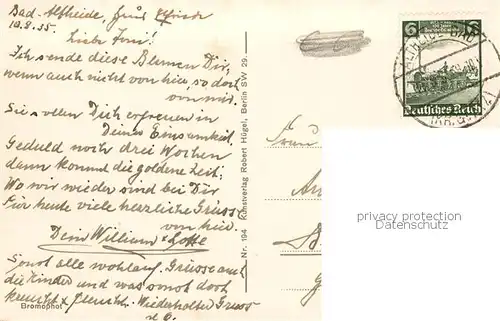 Bad-Altheide,
19.8.35.
Liebe Toni!
Ich sende diese Blumen Dir,
wenn auch nicht von hier, so dort
von mir.
Sie sollen Dich erfreuen in
Deiner Einsamkeit,
Geduld noch drei Wochen
dann kommt die goldene Zeit:
Wo wir wieder sind bei Dir
Für heute viele herzliche Grüsse
von hier.
Dein William & Lotte
Sonst alle wohlauf. Grüsse auch
die Kinder und was sonst dort
kreucht & fleucht. Wiederholter Gruss
Bromophot
Nr. 194 Kunstverlag Robert Hügel, Berlin SW 29.
6 6
Deutsches Reich
Frau
privacy protection
Datenschutz